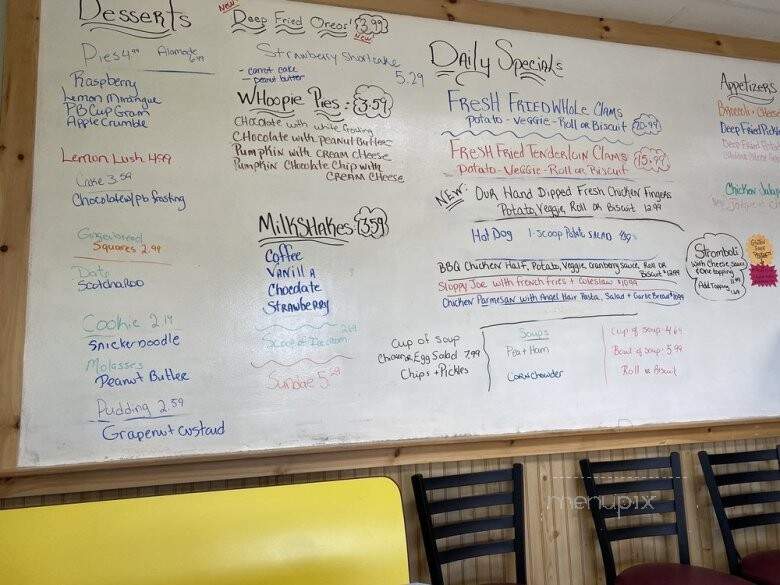 Desserts
Pies 4.99 Alamode
6.99
Raspberry
Lemon Miringue
PB Cup Gram
Apple Crumble
Lemon Lush 4.99
Cake 3.59
Chocolate w/pb frosting
Gingerbread
Squares 2.99
Date
Scotcharoo
Cookie 2.19
Snickernoodle
Molasses
Peanut Butter
Pudding 2.59
Grapenut custard
New:
Deep Fried Oreos! 3.99
New
Strawberry Shortcake
- carrot cake
- peanut butter
5.29
Whoopie Pies: 3.59
Chocolate with white frosting
Chocolate with peanut Butter
Pumpkin with cream cheese
Pumpkin Chocolate Chip with
cream cheese
Milkshakes: 3.59
Coffee
Vanilla
Chocolate
Strawberry
Scoop of Ice cream 2.69
Sundae 5.59
Daily Specials
Fresh Fried Whole Clams
Potato - Veggie - Roll or Biscuit 20.99
Fresh Fried Tenderloin Clams
Potato - Veggie - Roll or Biscuit 15.99
New:
Our Hand Dipped Fresh Chicken Fingers
Potato, Veggie, Roll or Biscuit 12.99
Hot Dog 1-Scoop Potato Salad
BBQ Chicken Half, Potato, Veggie, Cranberry Sauce, Roll or
Biscuit 12.99
Sloppy Joe with french fries + coleslaw 10.99
Chicken Parmesan with Angel Hair Pasta, Salad + Garlic Bread 10.99
Cup of Soup
Egg Salad 7.99
Chips + Pickles
Soups
Pea + Ham
Corn Chowder
Cup of Soup 4.69
Bowl of Soup 5.99
Roll or Biscuit
Appetizers
Broccoli + Cheese
Deep Fried Pickl
Deep Fried
Chicken Jalap
Stromboli
with Cheese, sauce
+ One topping
Add topping
menupix